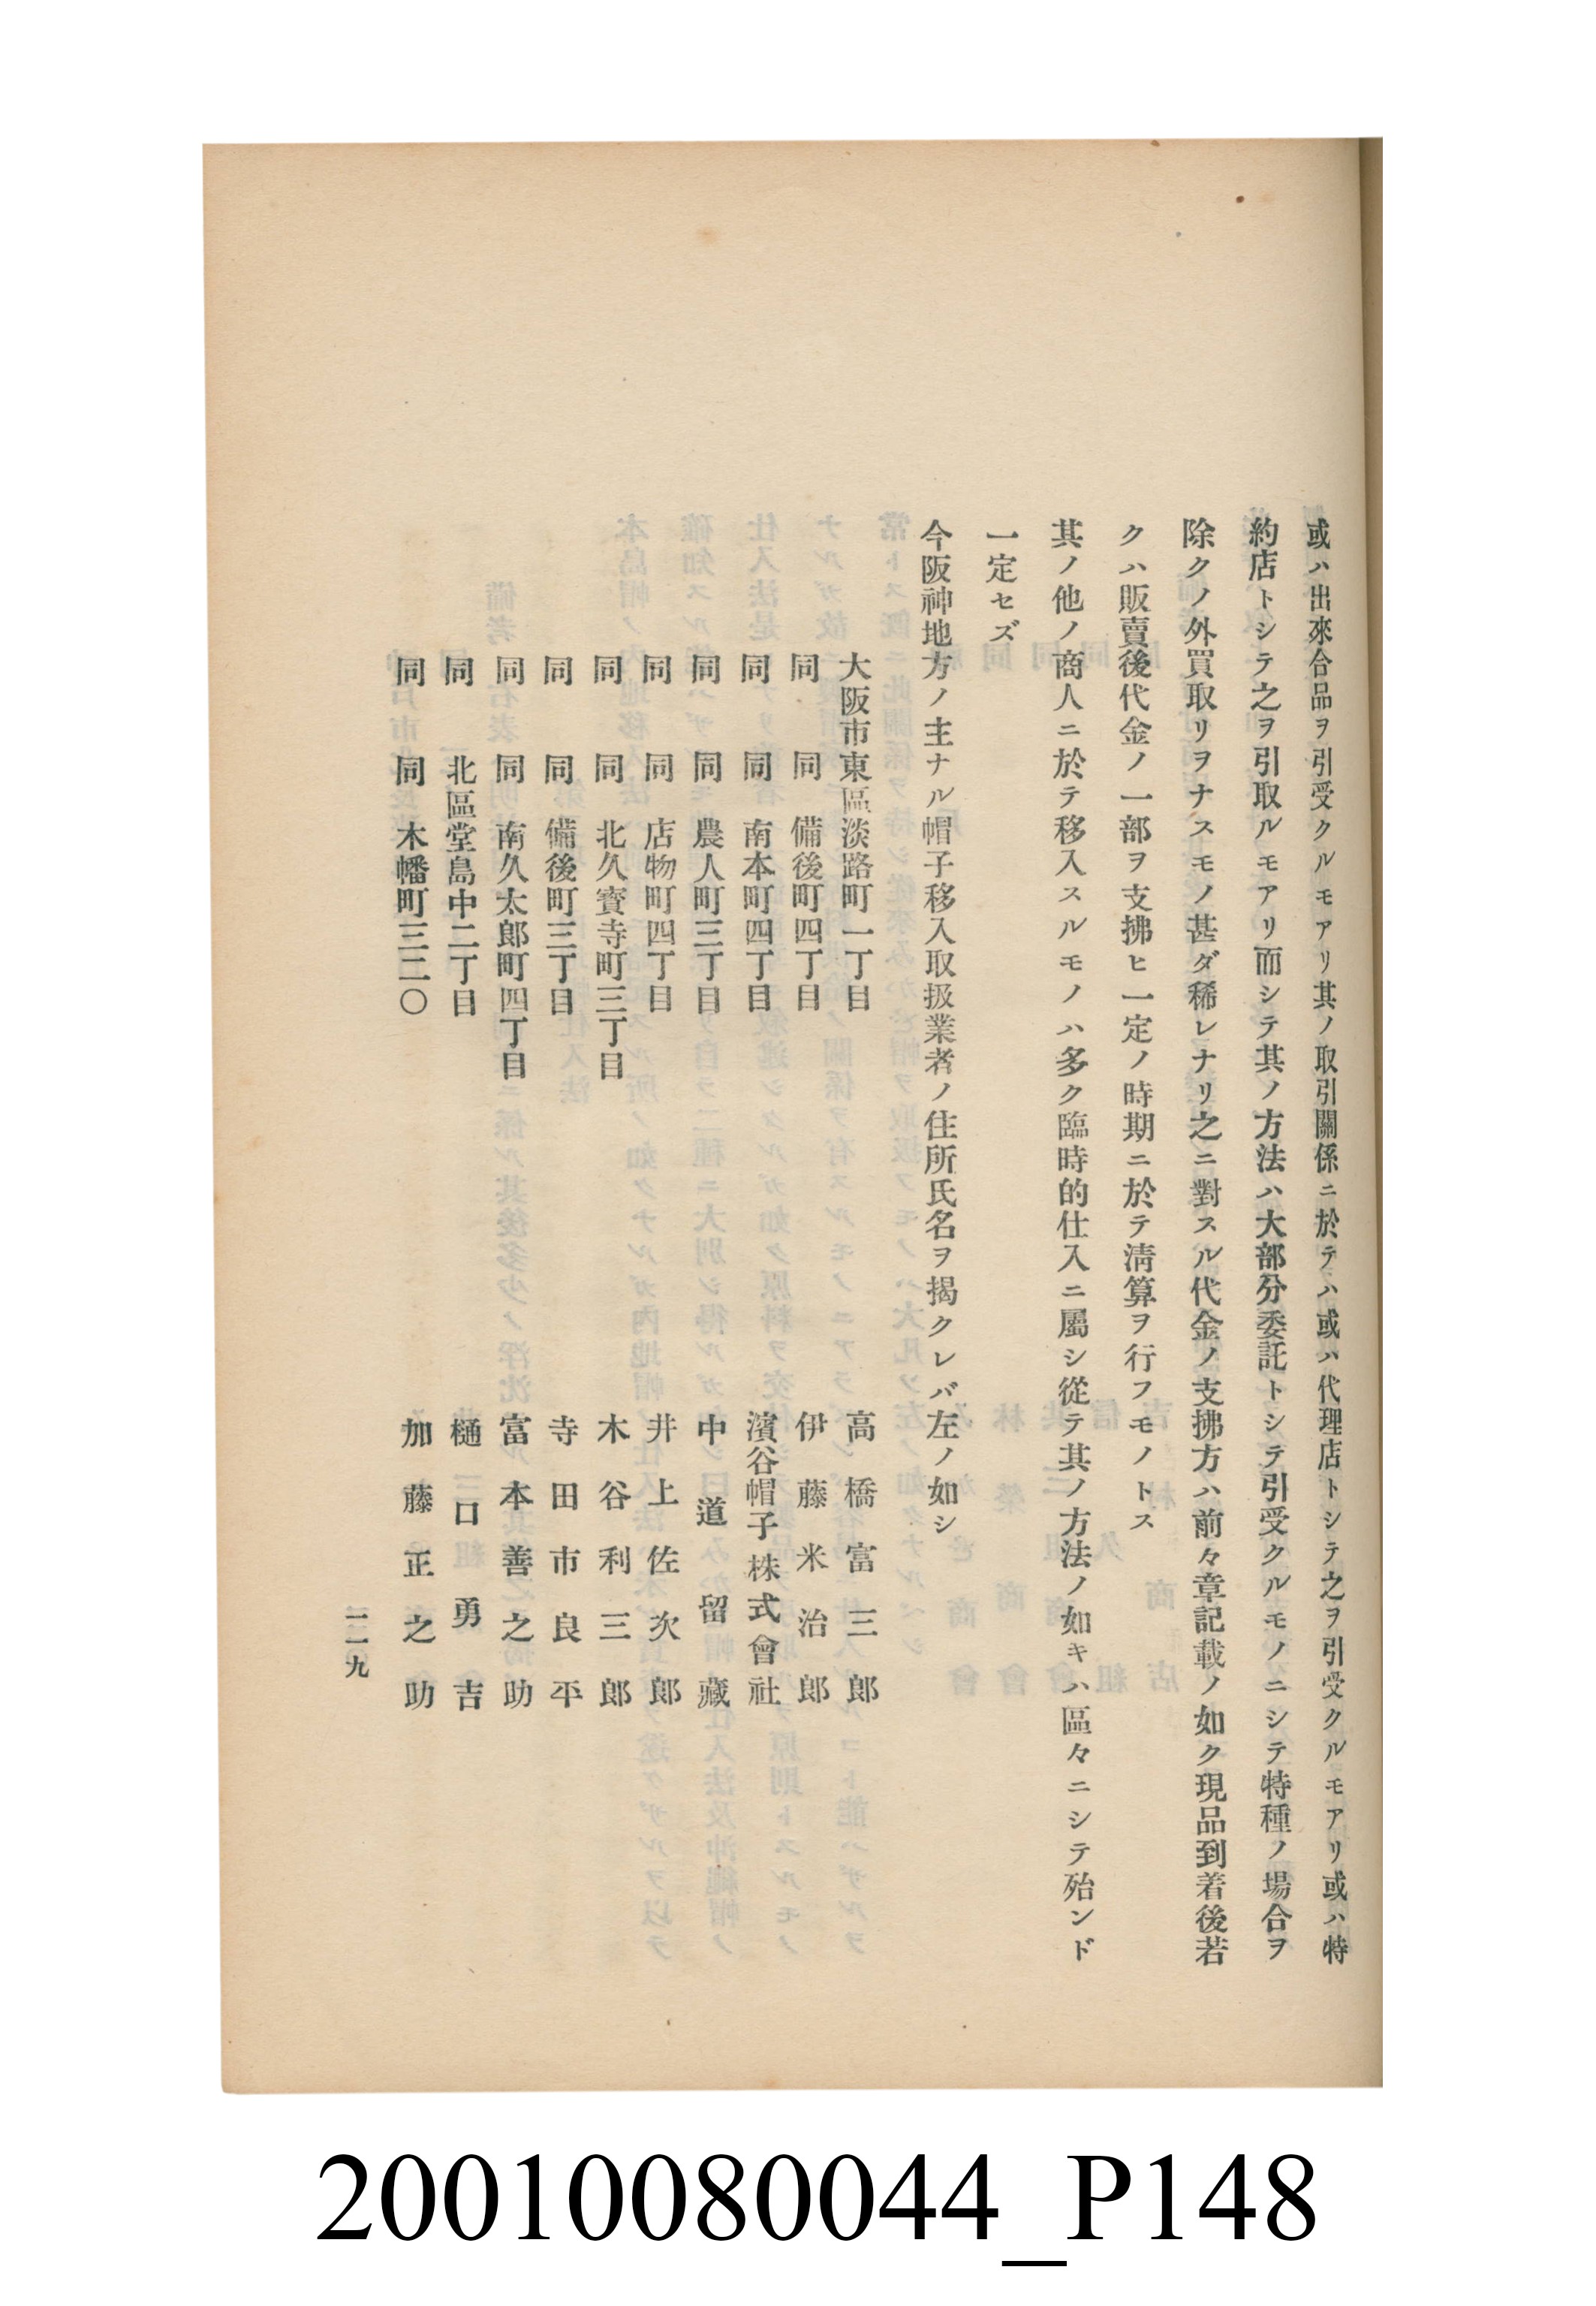 或ハ出來合品ヲ引受クルモアリ其ノ取引關係ニ於テハ或ハ代理店トシテ之ヲ引受クルモアリ或ハ特
約店トシテ之ヲ引取ルモアリ而シテ其ノ方法ハ大部分委託トシテ引受クルモノニシテ特種ノ場合ヲ
除クノ外買取リヲナスモノ甚ダ稀レナリ之ニ對スル代金ノ支拂方ハ前々章記載ノ如ク現品到着後若
クハ販賣後代金ノ一部ヲ支拂ヒ一定ノ時期ニ於テ淸算ヲ行フモノトス
其ノ他ノ商人ニ於テ移入スルモノハ多ク臨時的仕入ニ屬シ從テ其ノ方法ノ如キハ區々ニシテ殆ンド
一定セズ
今阪神地方ノ主ナル帽子移入取扱業者ノ住所氏名ヲ揭クレバ左ノ如シ
大阪市東區淡路町一丁目 高橋富三郎
同 同 備後町四丁目 伊藤米治郎
同 同 南本町四丁目 濱谷帽子株式會社
同 同 農人町三丁目 中道留藏
同 同 店物町四丁目 井上佐次郎
同 同 北久寶寺町三丁目 木谷利三郎
同 同 備後町三丁目 寺田市良平
同 同 南久太郎町四丁目 富本善之助
同 北區堂島中二丁目 樋口勇吉
同 同 木幡町三二〇 加藤正之助
二一九
20010080044_P148